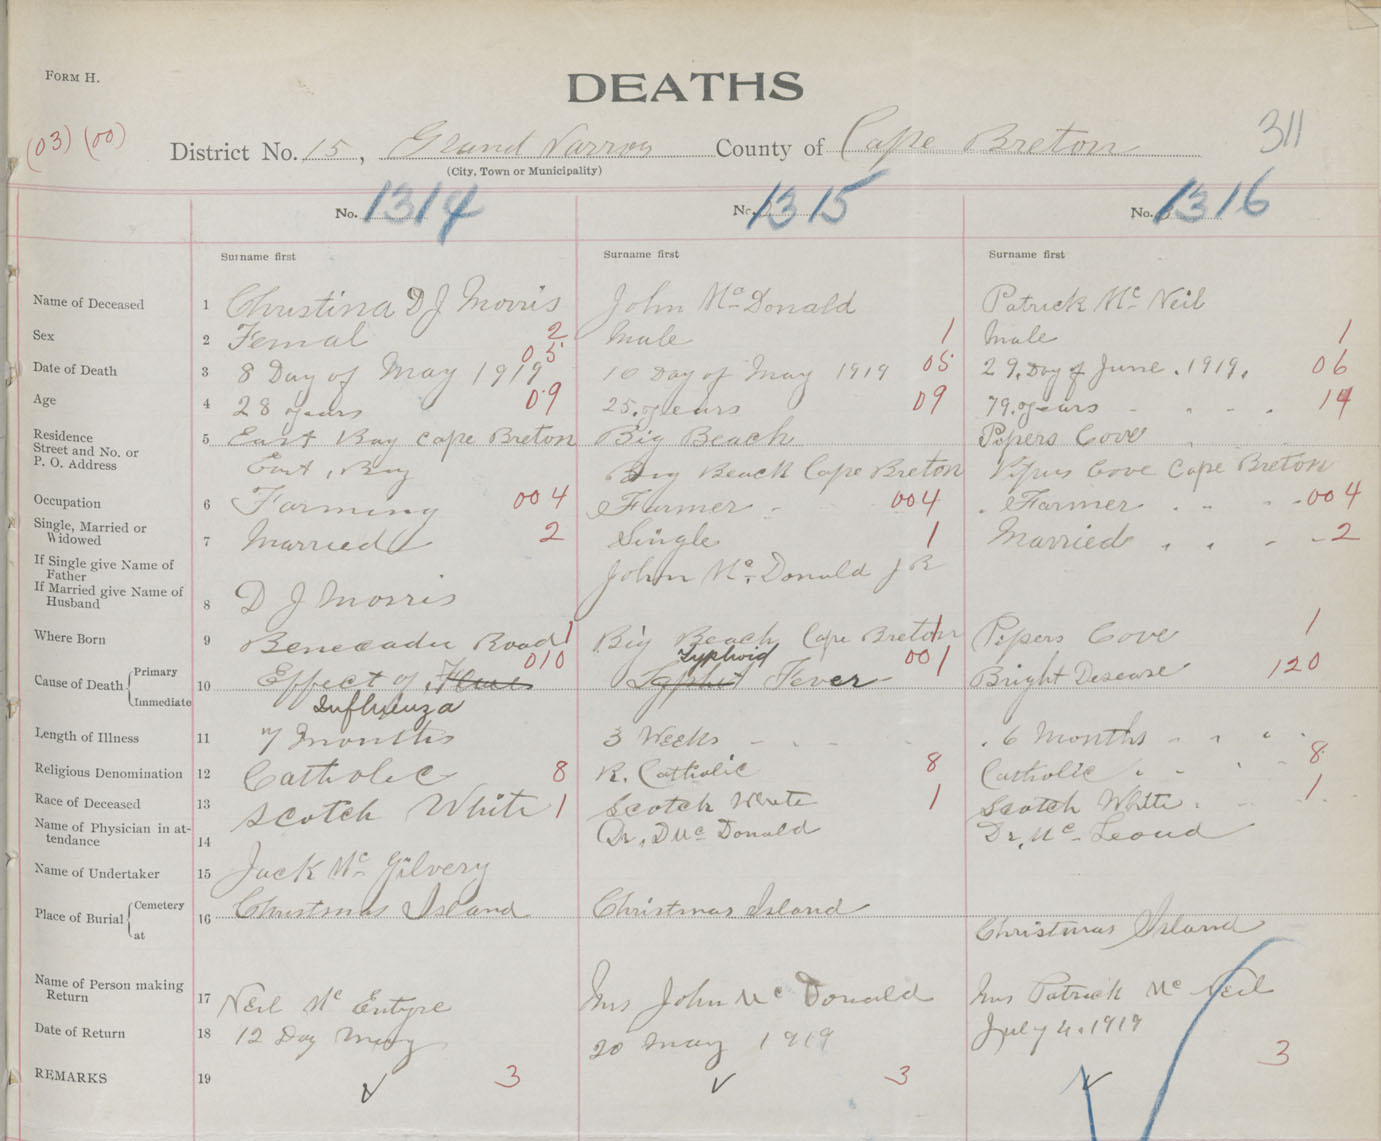 FORM H.
DEATHS
311
(03) (00)
District No. 15, Grand Narrow County of Cape Breton
(City, Town or Municipality)
No. 1314 No. 1315 No. 1316
Surname first Surname first Surname first
Name of Deceased 1 Christina D J Morris John Mc Donald Patrick Mc Neil
Sex 2 Femal 2 Male 1 Male 1
Date of Death 3 8 Day of May 1919 05 10 Day of May 1919 05 29. Day of June. 1919. 06
Age 4 28 years 09 25. years 09 79. years 14
Residence
Street and No. or
P. O. Address
5 East Bay Cape Breton Big Beach Pipers Cove
East, Bay Big Beach Cape Breton Pipers Cove Cape Breton
Occupation 6 Farming 004 Farmer 004 Farmer 004
Single, Married or
Widowed
7 Married 2 Single 1 Married 2
If Single give Name of
Father
John Mc. Donald J R
If Married give Name of
Husband
8 D J Morris
Where Born 9 Benecadu Road 1 Big Beach Cape Breton 1 Pipers Cove 1
Cause of Death { Primary Immediate
Typhoid
10 Effect of Flue 010 Fever 001 Bright Desease 120
Influenza
Length of Illness 11 7 months 3 Weeks 6 Months
Religious Denomination 12 Catholic 8 R. Catholic 8 Catholic 8
Race of Deceased 13 Scotch White 1 Scotch White 1 Scotch White 1
Name of Physician in at-
tendance
14 Dr. D Mc Donald Dr. Mc Leoud
Name of Undertaker 15 Jack Mc Gilvery
Place of Burial { Cemetery at
16 Christmas Island Christmas Island Christmas Island
Name of Person making
Return
17 Neil Mc Entyre Mrs John Mc Donald Mrs Patrick Mc Neil
Date of Return 18 12 Day May 20 May 1919 July 4. 1919
REMARKS 19 3 3 3